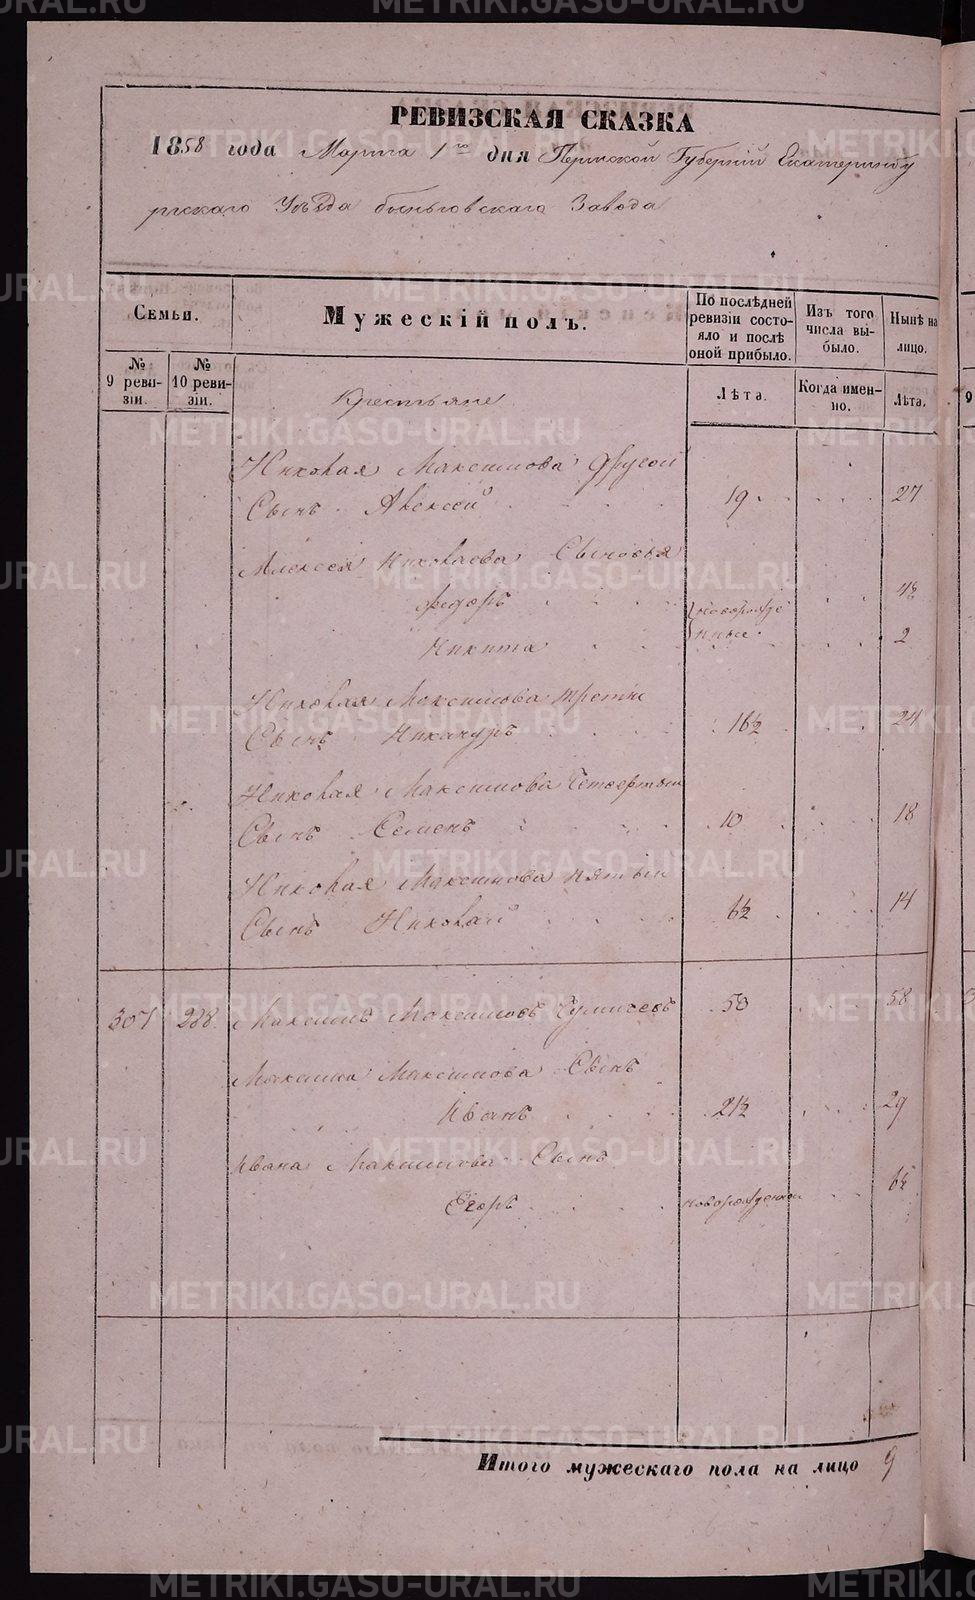 РЕВИЗСКАЯ СКАЗКА
1858 года Марта 1го дня Пермской Губерніи Екатеринбу
ргскаго Уѣзда Быньговскаго Завода
Семьи.
Мужескій полъ.
По послѣдней ревизіи состояло и послѣ оной прибыло.
Изъ того числа выбыло.
Нынѣ на лицо.
№ 9 ревизіи.
№ 10 ревизіи.
Лѣта.
Когда именно.
Лѣта.
Крестьяне
Николая Максимова другой
Сынъ Алексей 19 27
Алексея Николаева Сыновья
Федоръ новорожде 4½
Никита нные. 2
Николая Максимова третiи
Сынъ Никаноръ 16½ 24
Николая Максимова Четвертыи
Сынъ Семенъ 10 18
Николая Максимова пятыи
Сынъ Николай 6½ 14
307 238. Максимъ Максимовъ 50 58
Максима Максимова Сынъ
Иванъ 21½ 29
Ивана Максимова Сынъ
Егоръ новорожденной 6½
Итого мужескаго пола на лицо 9
METRIKI.GASO-URAL.RU